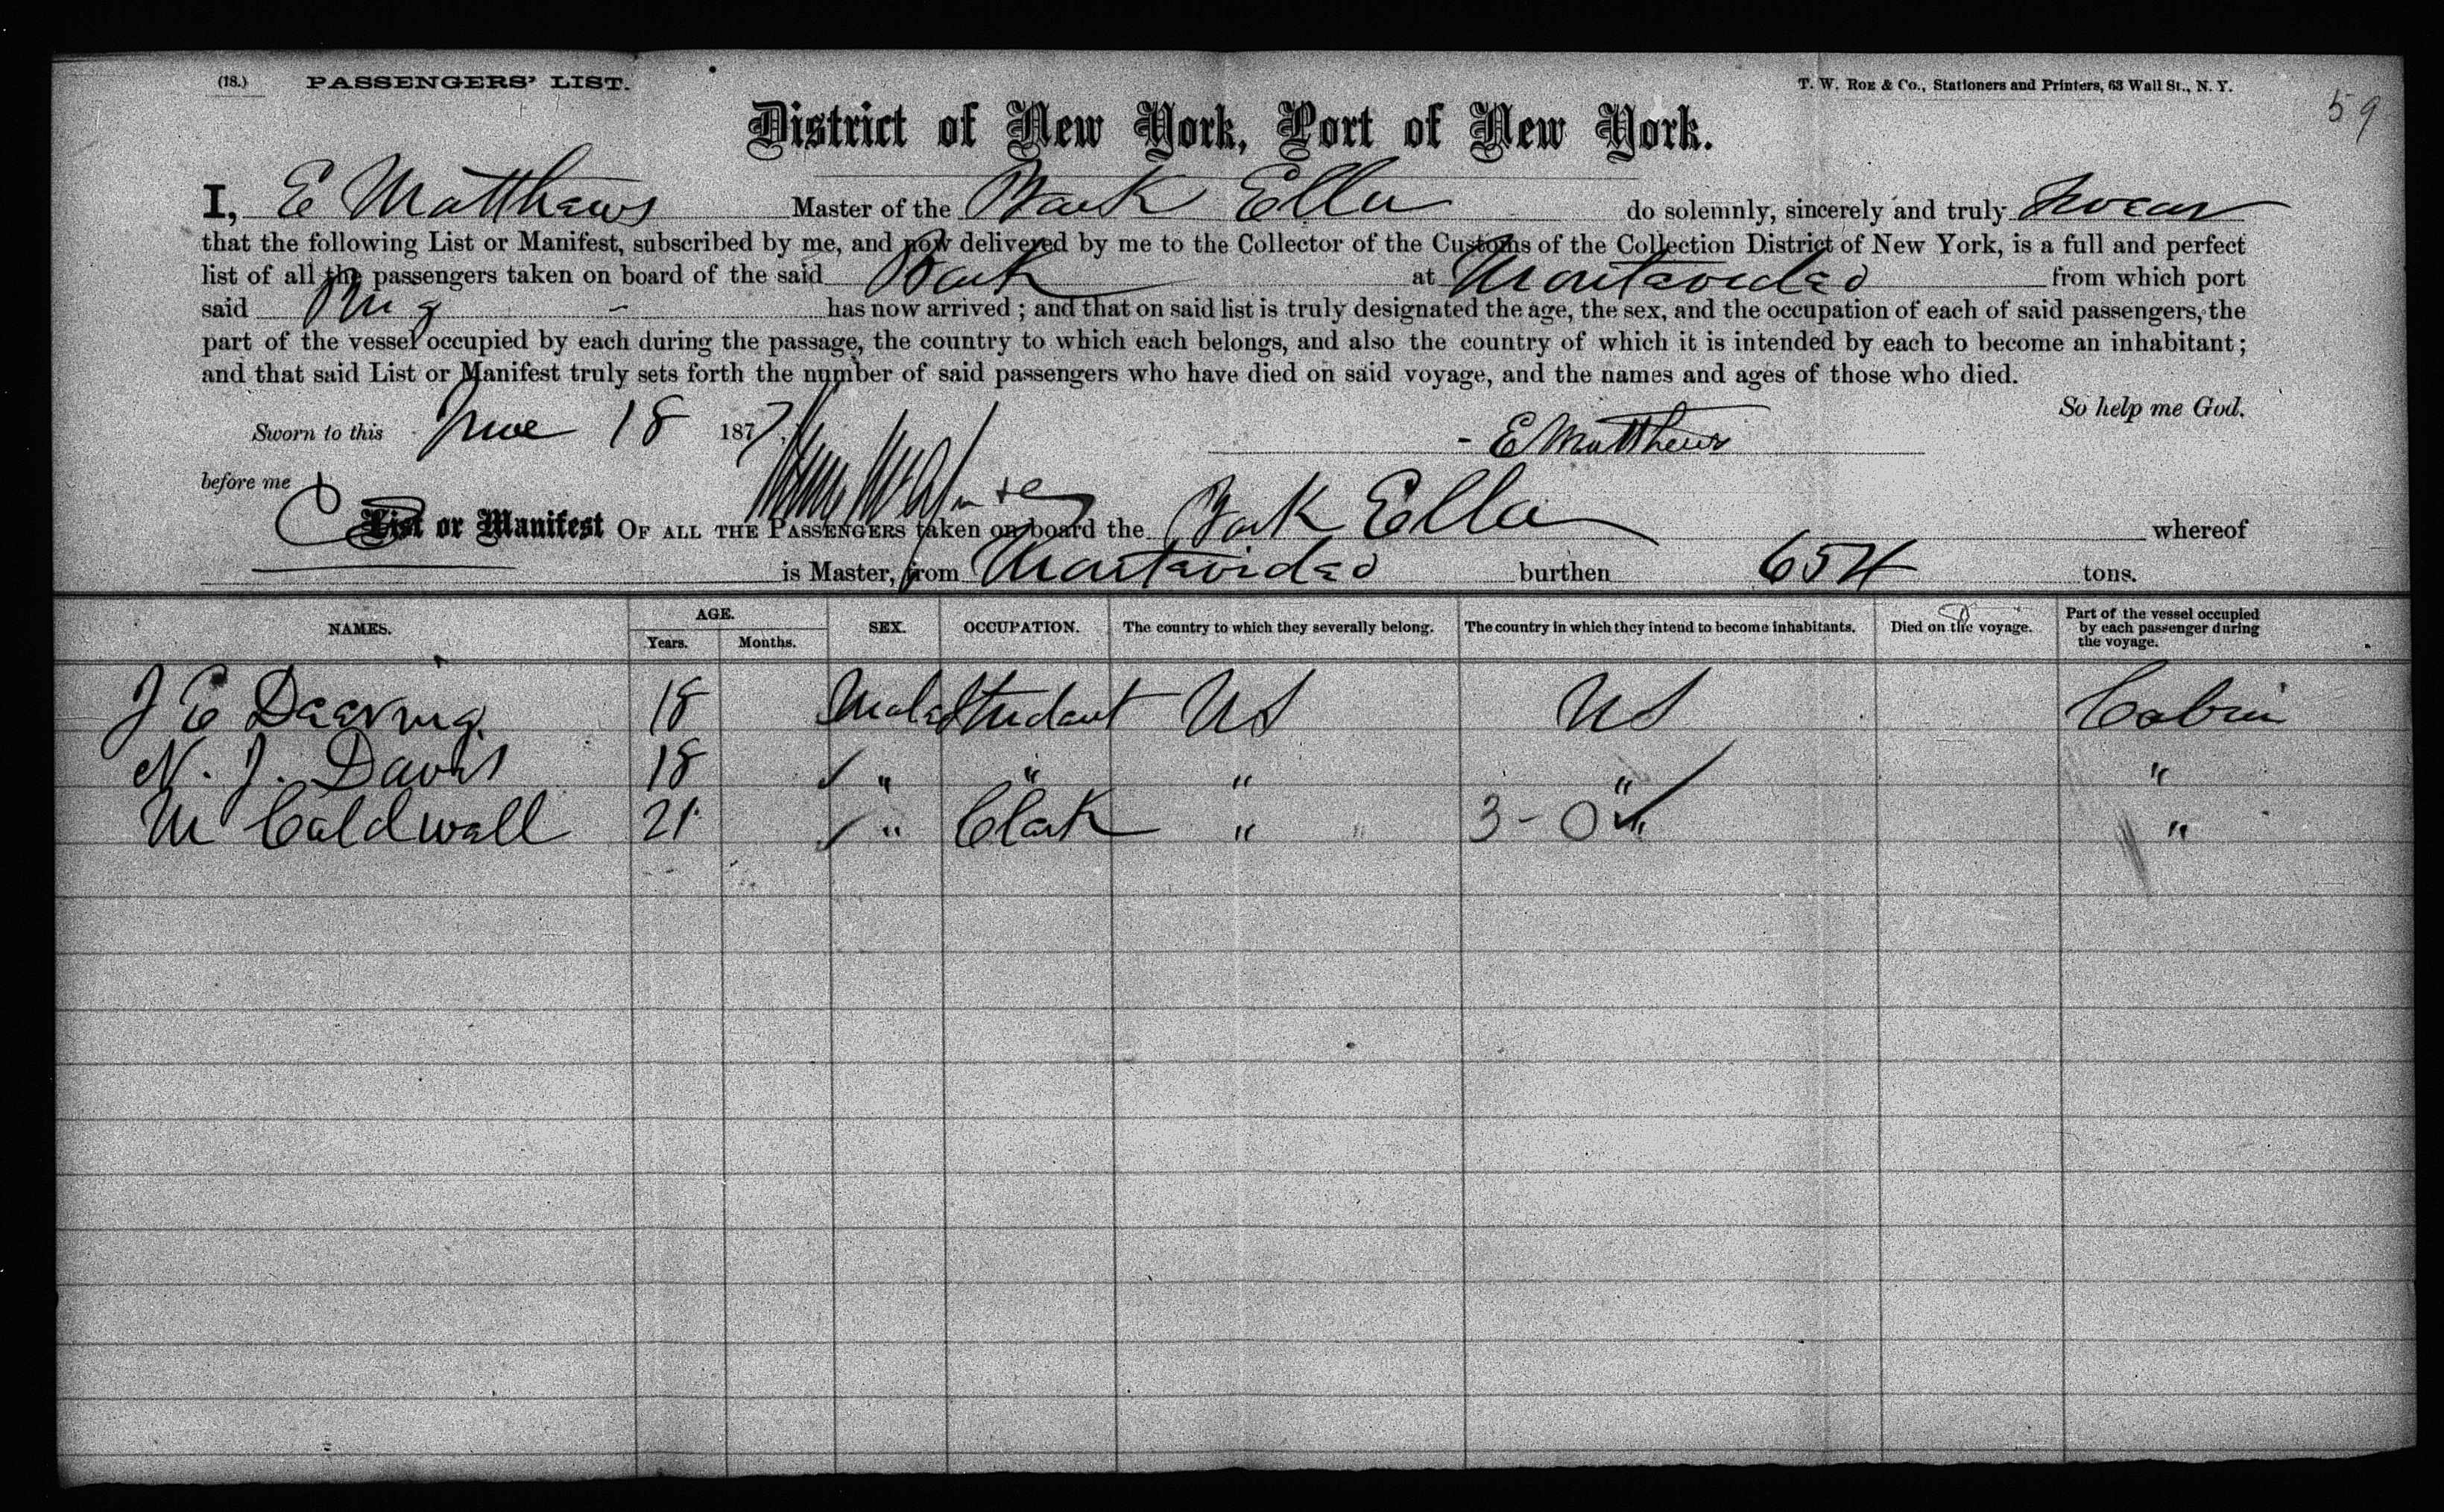 (18.) PASSENGERS' LIST. T. W. ROE & Co., Stationers and Printers, 63 Wall St., N. Y.
59
District of New York, Port of New York.
I, E Matthews Master of the Bark Ella do solemnly, sincerely and truly swear
that the following List or Manifest, subscribed by me, and now delivered by me to the Collector of the Customs of the Collection District of New York, is a full and perfect
list of all the passengers taken on board of the said Bark at Montevideo from which port
said Brig has now arrived; and that on said list is truly designated the age, the sex, and the occupation of each of said passengers, the
part of the vessel occupied by each during the passage, the country to which each belongs, and also the country of which it is intended by each to become an inhabitant;
and that said List or Manifest truly sets forth the number of said passengers who have died on said voyage, and the names and ages of those who died.
So help me God.
Sworn to this June 18 1877 E Matthews
before me
List or Manifest OF ALL THE PASSENGERS taken on board the Bark Ella whereof
is Master, from Montevideo burthen 654 tons.
NAMES. AGE. Years. Months. SEX. OCCUPATION. The country to which they severally belong. The country in which they intend to become inhabitants. Died on the voyage. Part of the vessel occupied by each passenger during the voyage.
J E Dearing 18 Male Student US US Cabin
N. J. Davis 18 " " " " "
M Caldwell 21 " Clerk " 3-0 " "